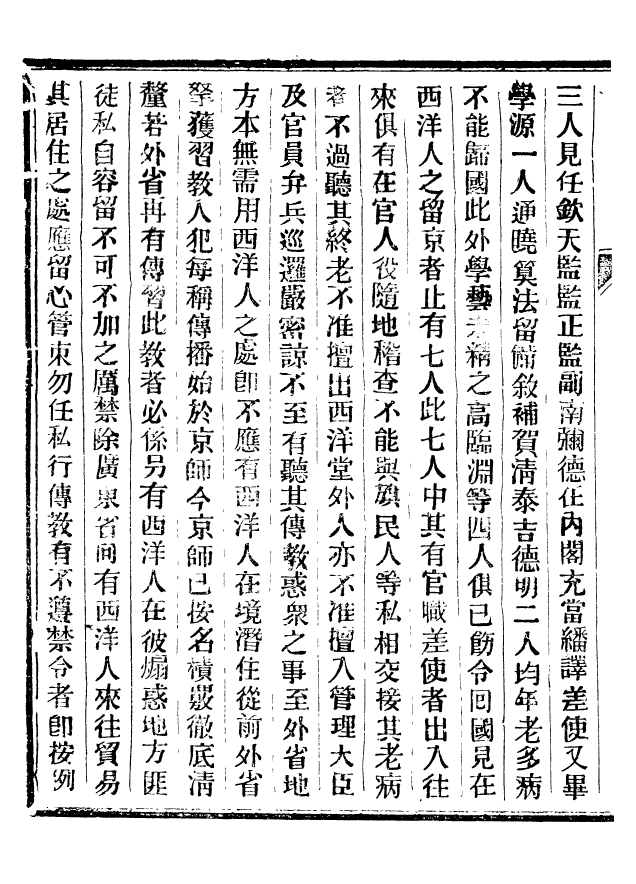 三人見任欽天監監正監副南彌德在內閣充當繙譯差使又畢
學源一人通曉筭法留備敘補賀清泰吉德明二人均年老多病
不能歸國此外學藝未精之高臨淵等四人俱已飭令回國見在
西洋人之留京者止有七人此七人中其有官職差使者出入往
來俱有在官人役隨地稽查不能與旗民人等私相交接其老病
者不過聽其終老不准擅出西洋堂外人亦不准擅入管理大臣
及官員弁兵巡邏嚴密諒不至有聽其傳教惑衆之事至外省地
方本無需用西洋人之處卽不應有西洋人在境潛住從前外省
拏獲習教人犯每稱傳播始於京師今京師已按名積覈徹底清
釐若外省再有傳習此教者必係另有西洋人在彼煽惑地方匪
徒私自容留不可不加之厲禁除廣東省向有西洋人來往貿易
其居住之處應留心管束勿任私行傳教有不遵禁令者卽按例